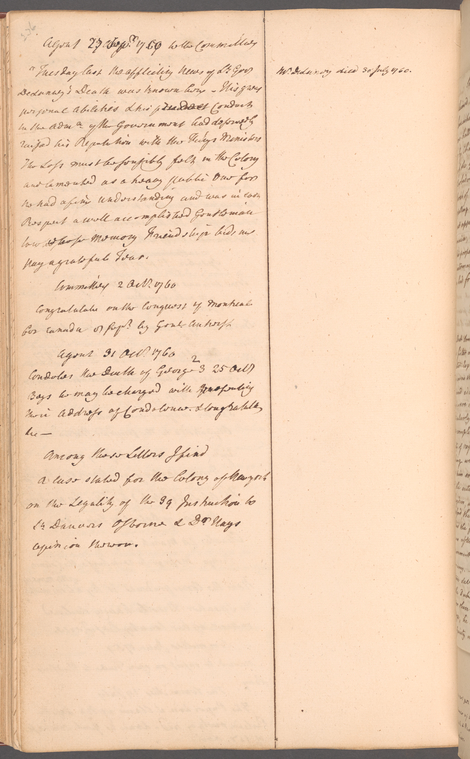 Agent 27 Sepr. 1760 to the Committee
"Tuesday last the afflicting News of Lt Govr
Delancey's Death was known here - His great
personal Abilities & his prudent Conduct
in the Adma. of the Government had deservedly
raised his Reputation with the King's Ministers
The Loss must be sensibly felt in the Colony
and lamented as a heavy public One for
he had a fine understanding and was in each
Respect a well accomplished Gentleman
to whose Memory Friendship bids me
pay a grateful Tear.
Committee 2 Octr. 1760
Congratulate on the Conquest of Montreal
& Canada 8 Sepr. by Genl. Amherst
Agent 31 Octr. 1760
Condoles the Death of George 3 2 25 Octr
Says he may be charged with presenting
their Address of Condolence & Congratulation
&c —
Among these Letters I find
a case stated for the Colony of New york
on the Legality of the 39 Instruction to
Sr Danvers Osborne & Dr. Hays
opinion thereon.
Mr. Delancey died 30 July 1760.